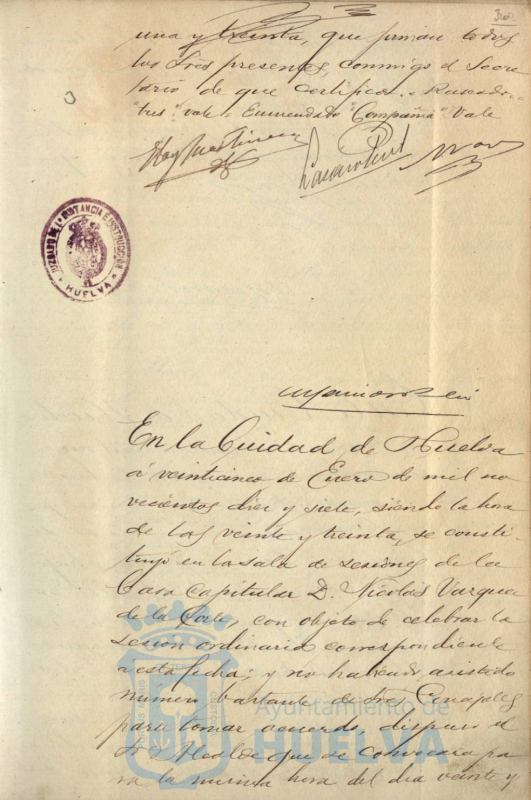 una y treinta, que firman todos
los Sres presentes, conmigo el Secre
tario de que certifico. = Raspado =
"tres": vale = Enmendado "Compañia" Vale
JUZGADO DE 1ª INSTANCIA E INSTRUCCIÓN
HUELVA
En la Ciudad de Huelva
á veinticinco de Enero de mil no
vecientos diez y siete, siendo la hora
de las veinte y treinta, se consti
tuyó en la sala de sesiones de la
Casa Capitular D. Nicolás Vazquez
de la Corte, con objeto de celebrar la
sesión ordinaria correspondiente
a esta fecha; y no habiendo asistido
número bastante de Sres Concejales
para tomar acuerdo, dispuso el
Sr Alcalde que se convocara pa
ra la misma hora del dia veinte y
Ayuntamiento de
HUELVA